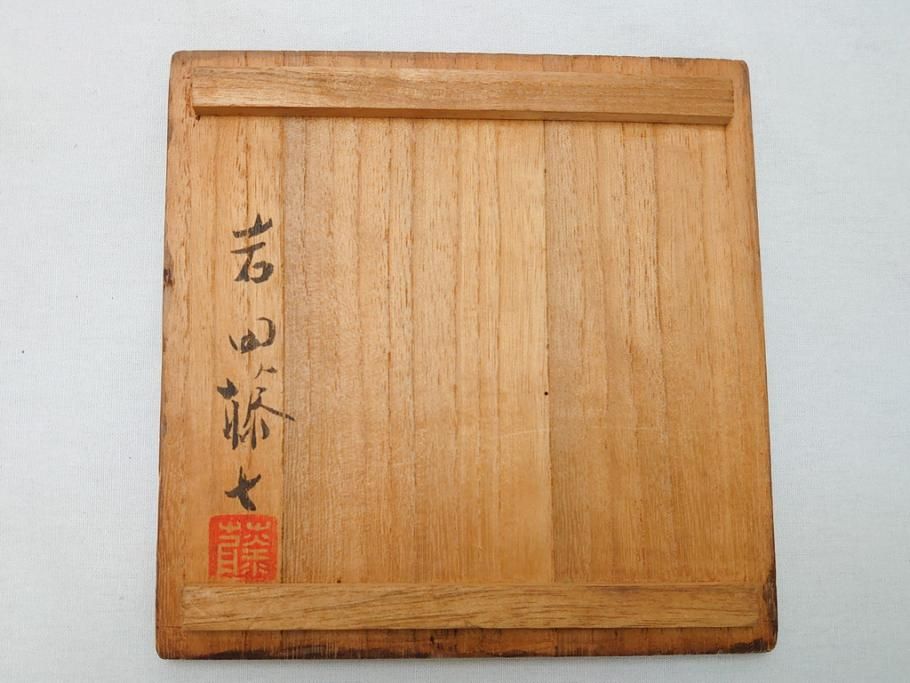 岩田藤七
藤